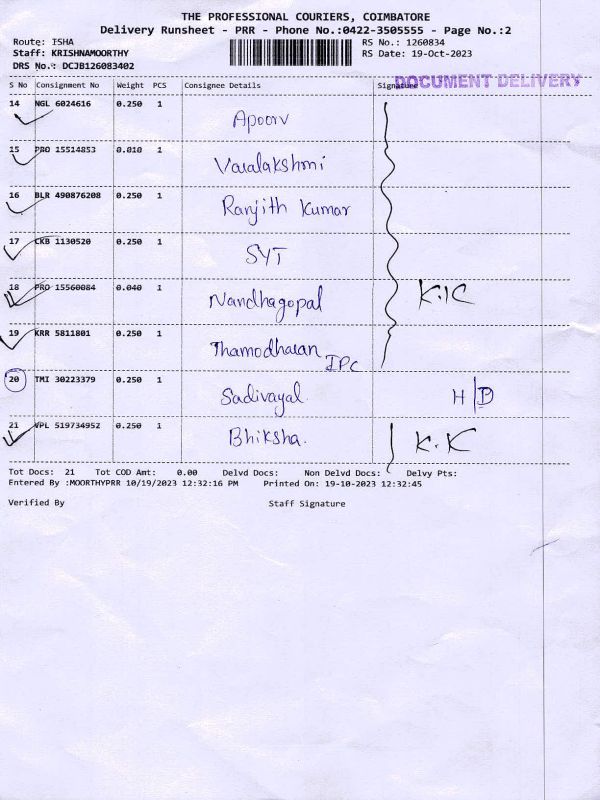 THE PROFESSIONAL COURIERS, COIMBATORE
Delivery Runsheet - PRR - Phone No.:0422-3505555 - Page No.:2
Route: ISHA RS No.: 1260834
Staff: KRISHNAMOORTHY RS Date: 19-Oct-2023
DRS No.: DCJB126083402
DOCUMENT DELIVERY
S No Consignment No Weight PCS Consignee Details Signature
14 NGL 6024616 0.250 1 Apoorv
15 PRO 15514853 0.010 1 Varalakshmi
16 BLR 490876208 0.250 1 Ranjith Kumar
17 CKB 1130520 0.250 1 SYT
18 PRO 15560084 0.040 1 Nandhagopal K.K
19 KRR 5811801 0.250 1 Thamodharan
IPC
20 TMI 30223379 0.250 1 Sadivayal. H|D
21 VPL 519734952 0.250 1 Bhiksha. K.K
Tot Docs: 21 Tot COD Amt: 0.00 Delvd Docs: Non Delvd Docs: Delvy Pts:
Entered By :MOORTHYPRR 10/19/2023 12:32:16 PM Printed On: 19-10-2023 12:32:45
Verified By Staff Signature